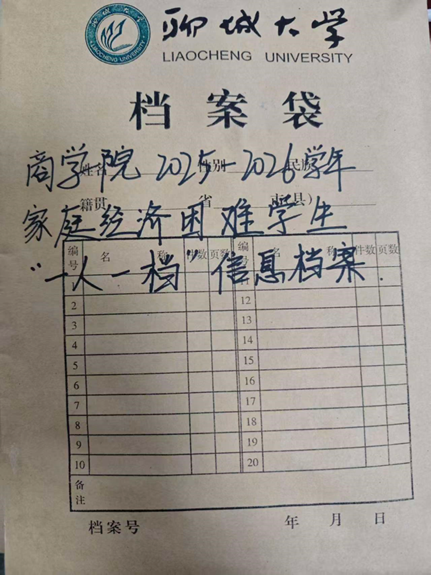 聊城大学
LIAOCHENG UNIVERSITY
档案袋
姓名 性别 民族
商学院 2025-2026学年
籍贯 省 市(县)
家庭经济困难学生
编号 名 称 件数 页数 编号 名 称 件数 页数
"一人一档"信息档案
11
2 12
3 13
4 14
5 15
6 16
7 17
8 18
9 19
10 20
备注
档案号 年 月 日